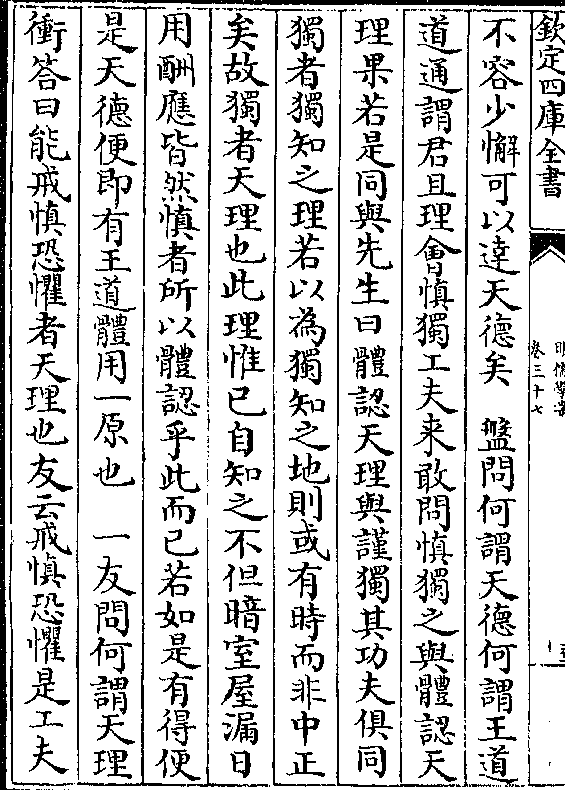 欽定四庫全書
明儒學案
卷三十七
不容少懈可以達天德矣　盤問何謂天德何謂王道
道通謂君且理會慎獨工夫来敢問慎獨之與體認天
理果若是同與先生曰體認天理與謹獨其功夫俱同
獨者獨知之理若以為獨知之地則或有時而非中正
矣故獨者天理也此理惟已自知之不但暗室屋漏日
用酬應皆然慎者所以體認乎此而已若如是有得便
是天德便即有王道體用一原也　一友問何謂天理
衝答曰能戒慎恐懼者天理也友云戒慎恐懼是工夫